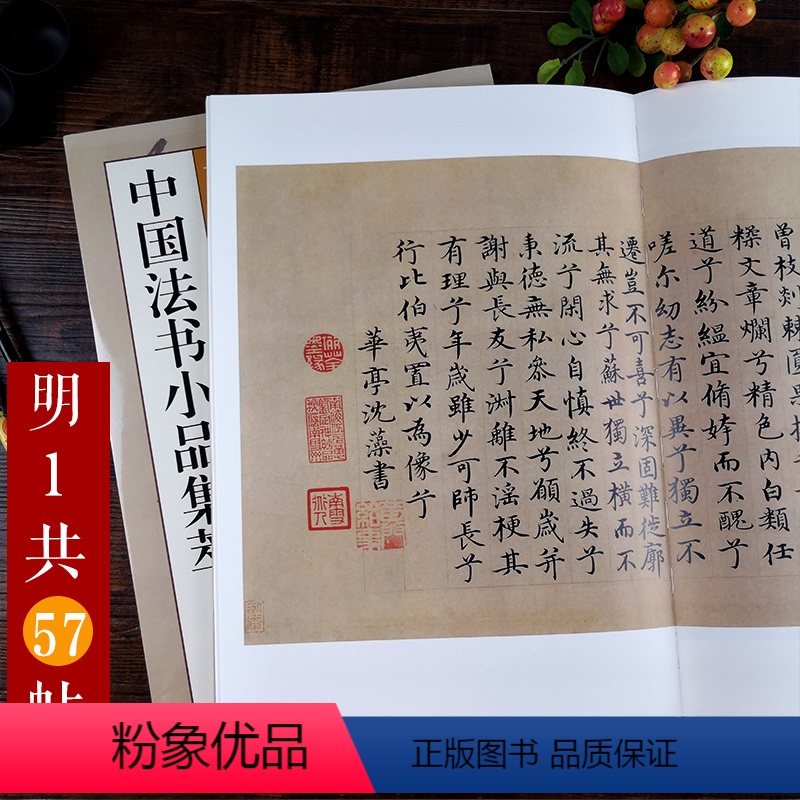 中国法书小品集萃
曾枝剡棘圓果
糅文章爛兮精色內白類任
道兮紛緼宜脩姱而不醜兮
嗟尔幼志有以異兮獨立不
遷豈不可喜兮深固難徙廓
其無求兮蘇世獨立橫而不
流兮閑心自慎終不過失兮
秉德無私叅天地兮願歲并
謝與長友兮淑離不滛梗其
有理兮年歲雖少可師長兮
行比伯夷置以為像兮
華亭沈藻書
明1共57帖
粉象优品
正版图书 品质保证